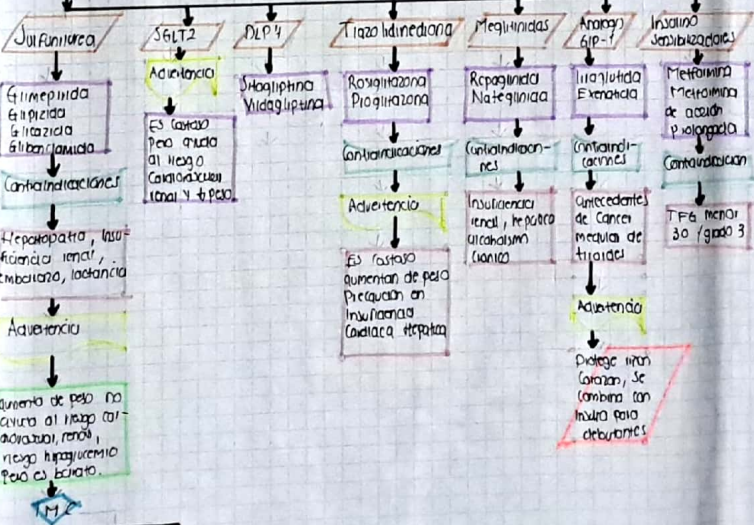 Sulfunilurea
Glimepirida
Glipizida
Glicazida
Glibenclamida
Contraindicaciones
Hepatopatia, Insu-
ficiencia renal,
embarazo, lactancia
Advertencia
aumento de peso no
ayuda al riesgo car-
diovascular, renal,
riesgo hipoglucemia
Pero es barato.
SGLT2
Advertencia
Es costoso
pero ayuda
al riesgo
Cardiovascular
renal y ↓ peso
DLP4
Sitagliptina
Vildagliptina
Tiazolidinediona
Rosiglitazona
Pioglitazona
Contraindicaciones
Advertencia
Es costoso
aumentan de peso
Precaución en
Insuficiencia
Cardiaca Hepatica
Meglitinidas
Repaglinida
Nateglinida
Contraindicacio-
nes
Insuficiencia
renal, hepatica
alcoholismo
cronico
Analogo
GLP-1
Liraglutida
Exenatida
Contraindi-
caciones
antecedentes
de Cancer
medula de
tiroides
Advertencia
Protege riñon
Corazon, se
combina con
Insulina para
debutantes
Insulino
Sensibilizadores
Metformina
Metformina
de acción
Prolongada
Contraindicacion
TFG menor
30 /grado 3